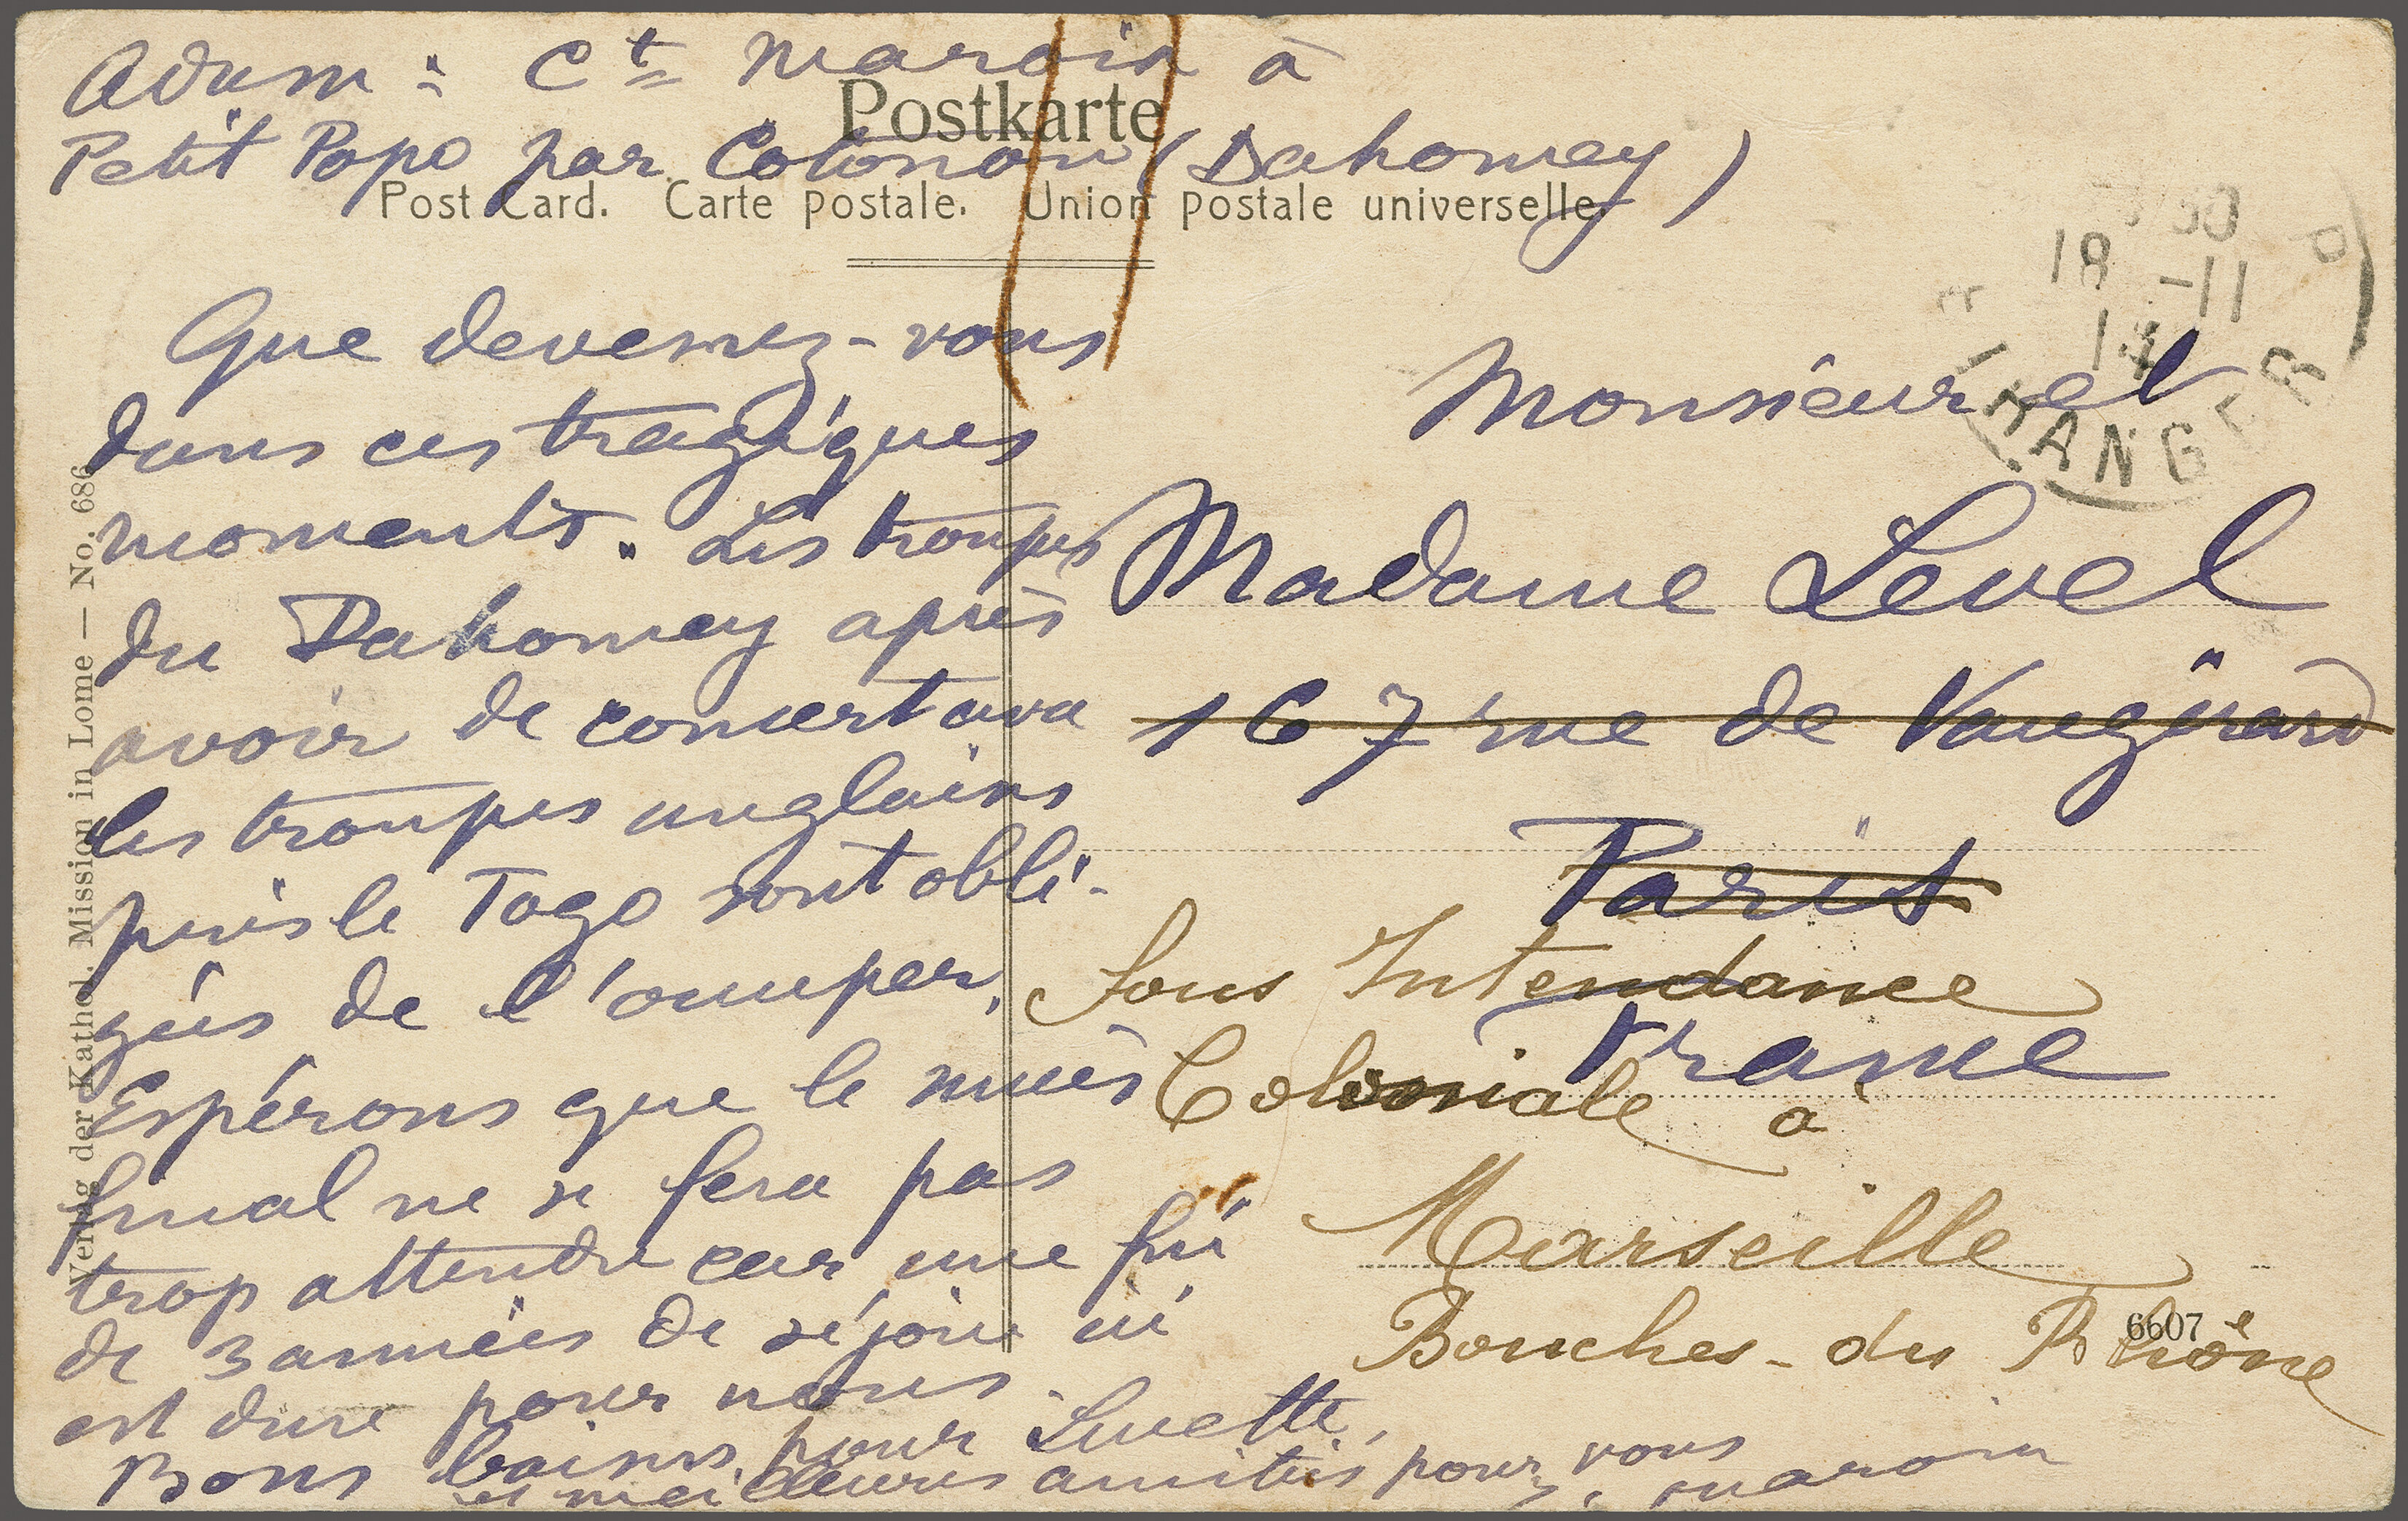 Adum : Ct Maroix à
Petit Popo par Cotonou (Dahomey)
Postkarte
Post Card. Carte postale. Union postale universelle.
Que devenez-vous
dans ces tragiques
moments. Les troupes
du Dahomey après
avoir de concert avec
les troupes anglaises
pris le Togo sont obli-
gées de l'occuper.
Espérons que le succès
final ne se fera pas
trop attendre car une fin
de 3 années de séjour ici
est dure pour nous.
Bons baisers pour Lucette,
et meilleures amitiés pour vous
Maroix
18 -11
14
ETRANGER
Monsieur et
Madame Level
167 rue de Vaugirard
Paris
Sous Intendance
France
Coloniale à
Marseille
Bouches-du Rhône
6607
Verlag der Kathol. Mission in Lome — No. 686